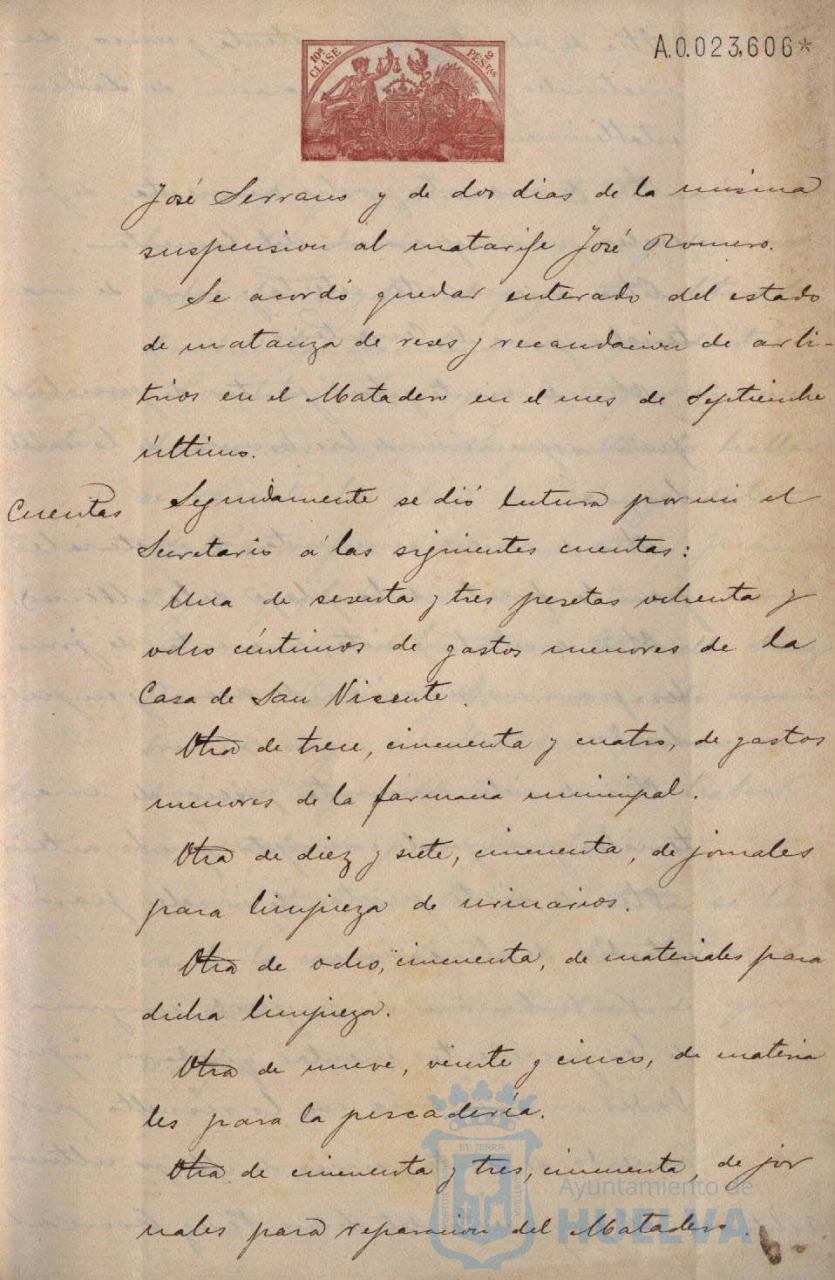 10ª CLASE
2 PESTAS
A.0.023,606*
José Serrano y de dos dias de la misma
suspension al matarife José Romero.
Se acordó quedar enterado del estado
de matanza de reses y recaudacion de arbi-
trios en el Matadero en el mes de Septiembre
último.
Cuentas
Seguidamente se dió lectura por mi el
Secretario á las siguientes cuentas:
Una de sesenta y tres pesetas ochenta y
ocho céntimos de gastos menores de la
Casa de San Vicente.
Otra de trece, cincuenta y cuatro, de gastos
menores de la farmacia municipal.
Otra de diez y siete, cincuenta, de jornales
para limpieza de urinarios.
Otra de ocho, cincuenta, de materiales para
dicha limpieza.
Otra de nueve, veinte y cinco, de materia
les para la pescadería.
Otra de cincuenta y tres, cincuenta, de jor
nales para reparacion del Matadero.
Ayuntamiento de
HUELVA